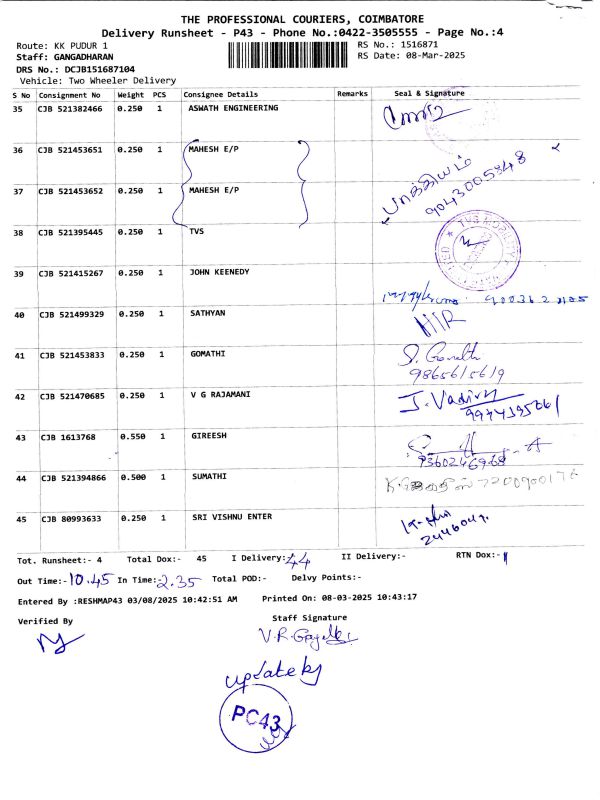 THE PROFESSIONAL COURIERS, COIMBATORE
Delivery Runsheet - P43 - Phone No.:0422-3505555 - Page No.:4
Route: KK PUDUR 1 RS No.: 1516871
Staff: GANGADHARAN RS Date: 08-Mar-2025
DRS No.: DCJB151687104
Vehicle: Two Wheeler Delivery
S No Consignment No Weight PCS Consignee Details Remarks Seal & Signature
35 CJB 521382466 0.250 1 ASWATH ENGINEERING
36 CJB 521453651 0.250 1 MAHESH E/P
37 CJB 521453652 0.250 1 MAHESH E/P பாக்கியம்
9043005848
38 CJB 521395445 0.250 1 TVS
39 CJB 521415267 0.250 1 JOHN KEENEDY
40 CJB 521499329 0.250 1 SATHYAN
41 CJB 521453833 0.250 1 GOMATHI S. Gomathi
9865615619
42 CJB 521470685 0.250 1 V G RAJAMANI J. Vadivu
43 CJB 1613768 0.550 1 GIREESH
9360246968
44 CJB 521394866 0.500 1 SUMATHI
45 CJB 80993633 0.250 1 SRI VISHNU ENTER
Tot. Runsheet:- 4 Total Dox:- 45 I Delivery:- 44 II Delivery:- RTN Dox:- 1
Out Time:- 10.45 In Time:- 2.35 Total POD:- Delvy Points:-
Entered By :RESHMAP43 03/08/2025 10:42:51 AM Printed On: 08-03-2025 10:43:17
Verified By Staff Signature
update by
PC43